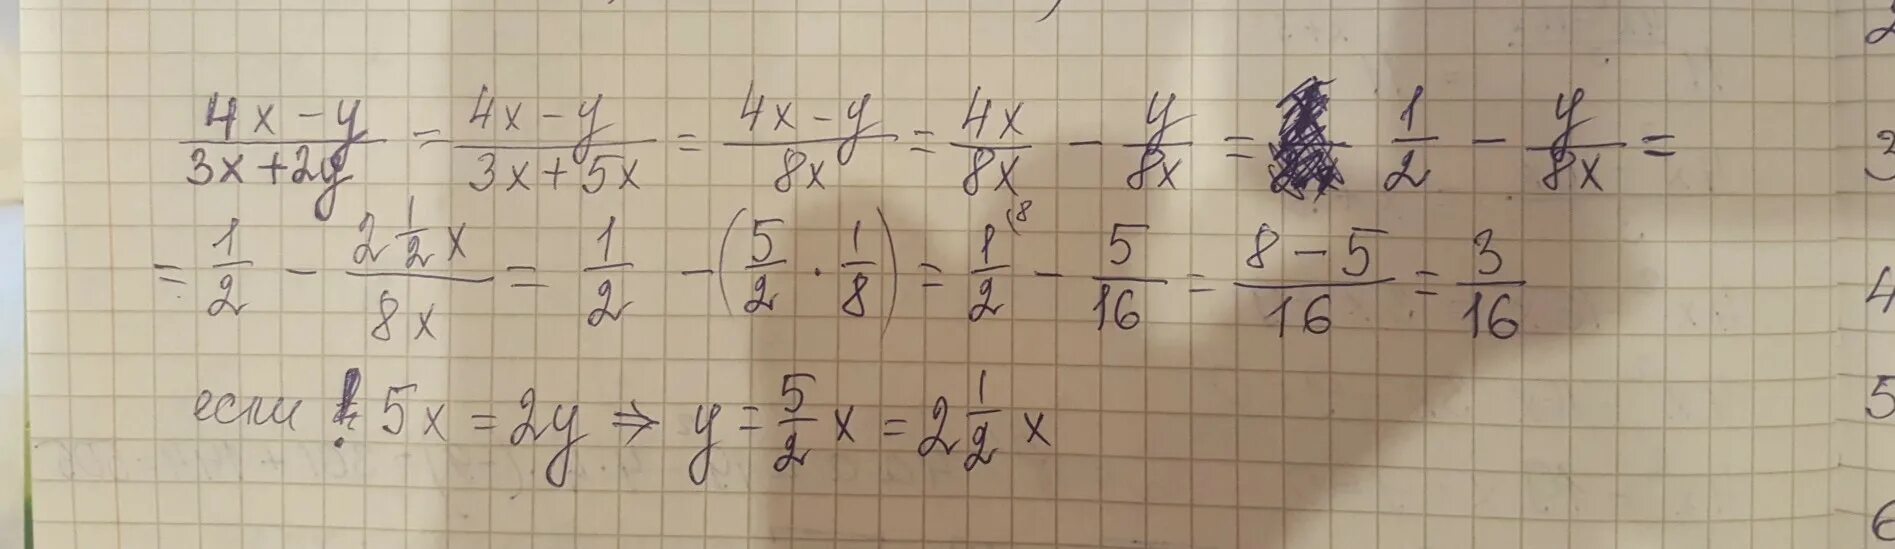 (4x - y)/(3x + 2y) = (4x - y)/(3x + 5x) = (4x - y)/(8x) = 4x/8x - y/8x = 1/2 - y/8x =
= 1/2 - (2 1/2 x)/(8x) = 1/2 - (5/2 · 1/8) = 1/2 (8 - 5/16 = (8 - 5)/16 = 3/16
если 5x = 2y ⇒ y = 5/2 x = 2 1/2 x
3
4
5
6